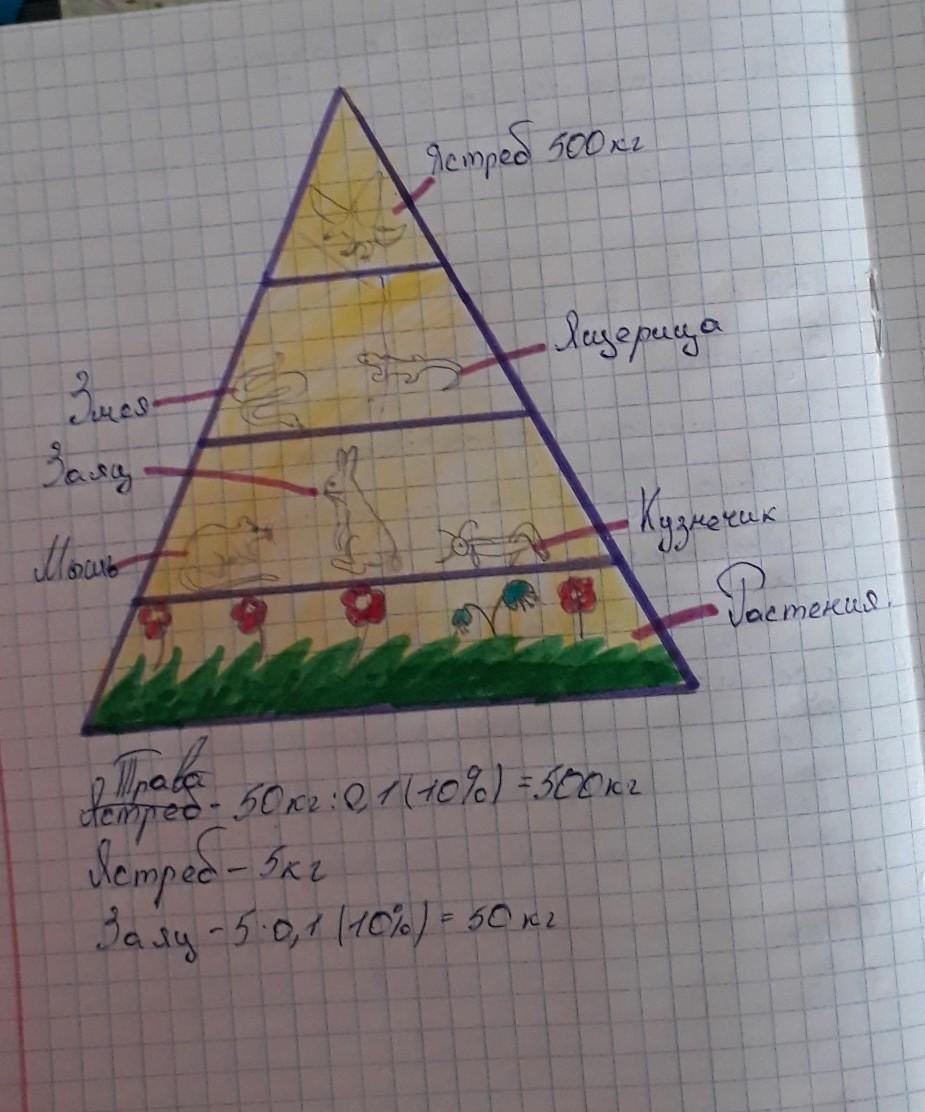 Ястреб 500кг
Ящерица
Змея
Заяц
Кузнечик
Мышь
Растения.
Трава
Ястреб - 50кг : 0,1 (10%) = 500кг
Ястреб - 5кг
Заяц - 5 · 0,1 (10%) = 50кг